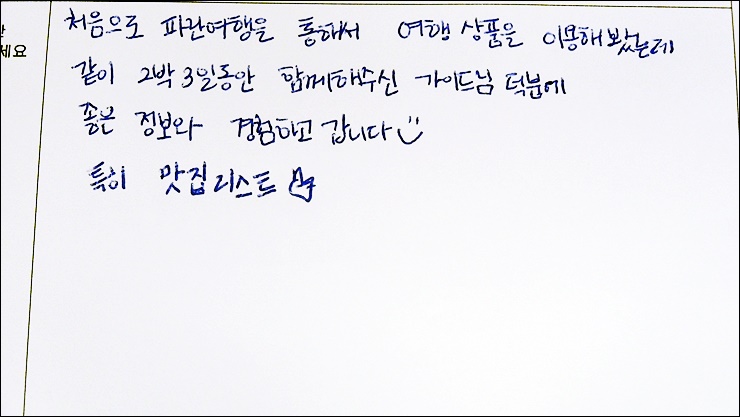 세요
처음으로 파란여행을 통해서 여행 상품을 이용해봤는데
같이 2박 3일동안 함께해주신 가이드님 덕분에
좋은 정보와 경험하고 갑니다
특히 맛집리스트